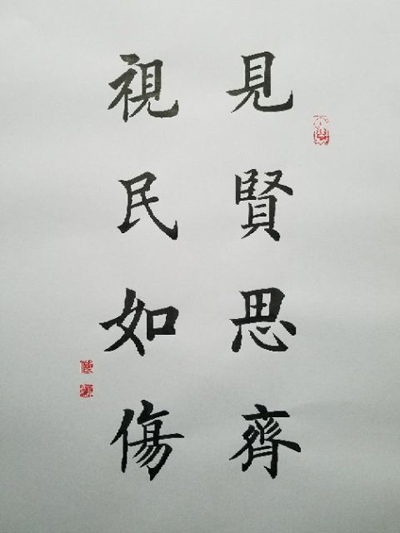 見賢思齊
視民如傷